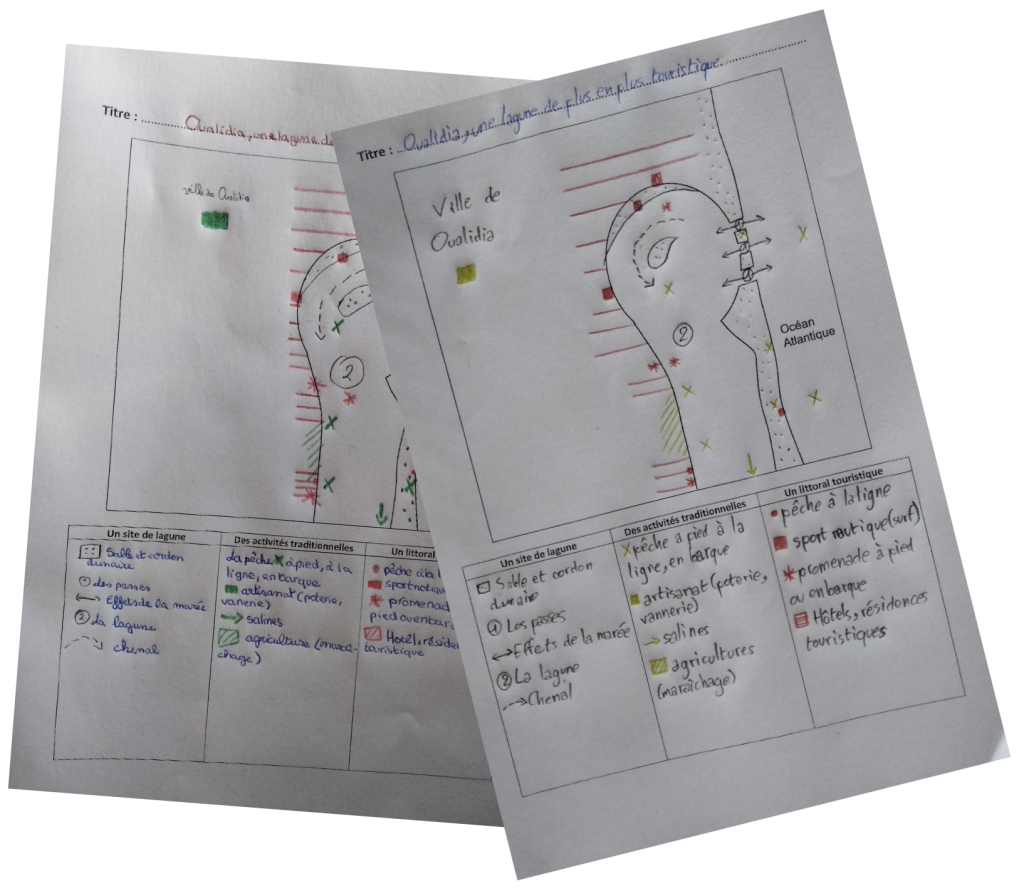 Titre : Oualidia, une lagune de
ville de Oualidia
2
Un site de lagune
Sable et cordon
dunaire
1 des passes
Effets de la marée
2 La lagune
chenal
Des activités traditionnelles
La pêche à pied, à la
ligne, en barque
artisanat (poterie,
vanerie)
salines
agriculture (maraî-
chage)
Un littoral
pêche à la
sport notique
promenade
pied ou en barc
Hotel, réside
touristique
Titre : Oualidia, une lagune de plus en plus touristique.
Ville de
Oualidia
2
Océan
Atlantique
Un site de lagune
Sable et cordon
dunaire
1 Les passes
Effets de la marée
2 La lagune
Chenal
Des activités traditionnelles
pêche à pied à la
ligne, en barque
artisanat (poterie,
vannerie)
salines
agricultures
(maraîchage)
Un littoral touristique
pêche à la ligne
sport nautique (surf)
promenade à pied
ou en barque
Hôtels, résidences
touristiques